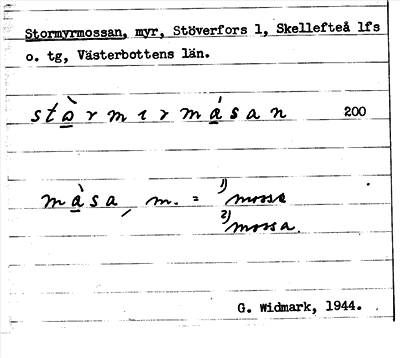 Stormyrmossan, myr, Stöverfors 1, Skellefteå lfs
o. tg, Västerbottens län.
stò̲rmırmá̲san 200
mà̲sa, m. = 1) mosse
2) mossa.
G. Widmark, 1944.